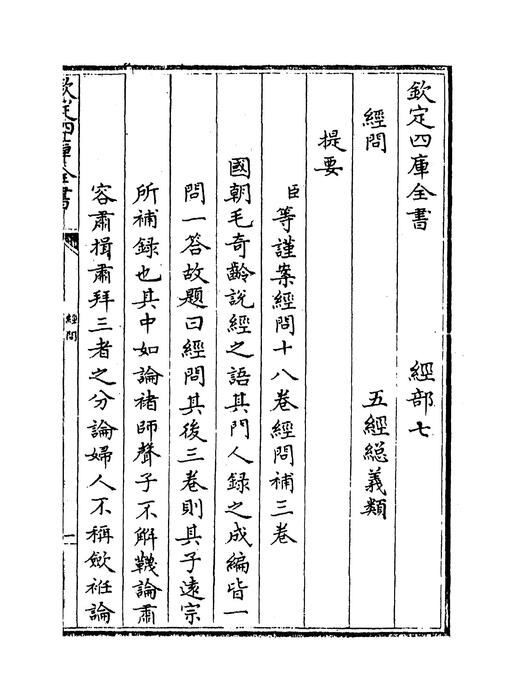 欽定四庫全書　　　經部七
經問　　　　　　　五經緫義類
提要
臣等謹案經問十八卷經問補三卷
國朝毛奇齡說經之語其門人録之成編皆一
問一答故題曰經問其後三卷則其子遠宗
所補録也其中如論褚師聲子不解韈論肅
容肅揖肅拜三者之分論婦人不稱斂袵論
欽定四庫全書
經問
一